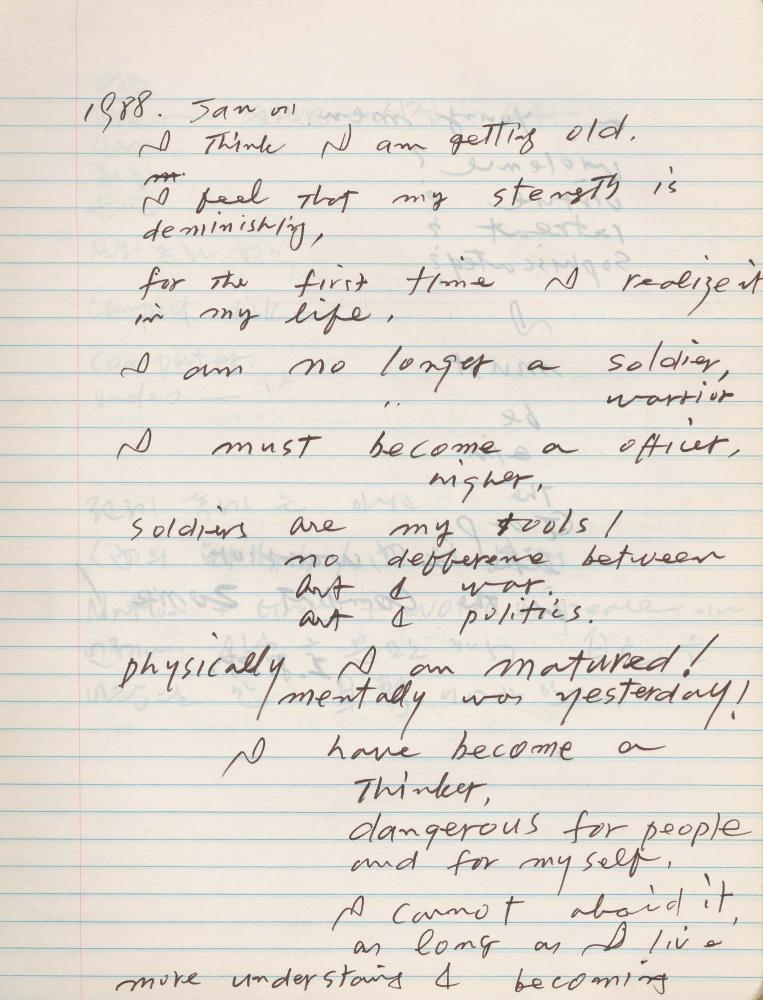 1988. Jan 01
I Think I am getting old.
I feel that my stength is
deminishig,
for the first time I realize it
in my life.
I am no longer a soldier,
" warrior
I must become a officer,
higher.
soldiers are my tools!
no defference between
art & war.
art & politics.
physically I am matured!
mentally was yesterday!
I have become a
Thinker,
dangerous for people
and for myself.
I cannot aboid it,
as long as I live
more understaing & becoming